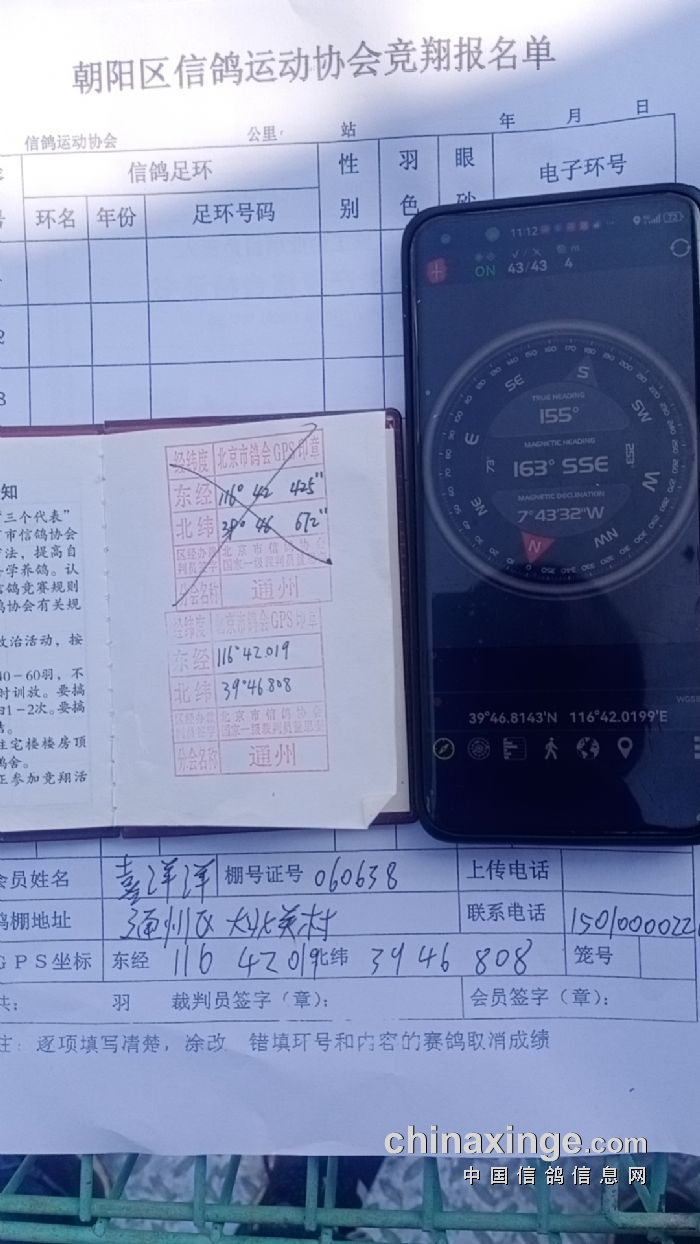 朝阳区信鸽运动协会竞翔报名单
信鸽运动协会 公里 站 年 月 日
信鸽足环 性别 羽色 眼砂 电子环号
环名 年份 足环号码
11:12 72
ON 43/43 4
S
SE
SW
E
W
NE
NW
N
TRUE HEADING
155°
MAGNETIC HEADING
163° SSE
73° 253°
MAGNETIC DECLINATION
7°43'32"W
WGS8
39°46.8143'N 116°42.0199'E
知
"三个代表"
市信鸽协会
法，提高自
学养鸽。认
信鸽竞赛规则
鸽协会有关规
政治活动，按
40-60羽，不
时训放。要搞
1-2次。要搞
住宅楼楼房顶
鸽舍。
正参加竞翔活
经纬度 北京市鸽会GPS印章
东经 116° 42 425"
北纬 39° 46 672"
区经办裁判员签字 北京市信鸽协会国家一级裁判员
分会名称 通州
经纬度 北京市鸽会GPS印章
东经 116°42019
北纬 39°46808
区经办裁判员签字 北京市信鸽协会国家一级裁判员
分会名称 通州
会员姓名 喜洋洋 棚号证号 060638 上传电话
鸽棚地址 通州区 村 联系电话 1501000022
GPS坐标 东经 116 42 019 北纬 39 46 808 笼号
共： 羽 裁判员签字（章）： 会员签字（章）：
注：逐项填写清楚，涂改 错填环号和内容的赛鸽取消成绩
chinaxinge.com
中国信鸽信息网